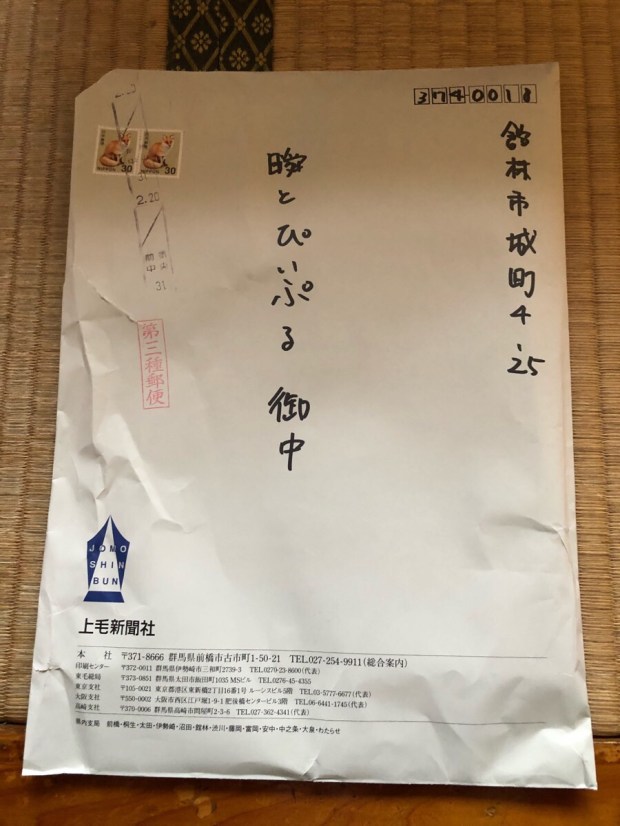 3740018
館林市城町4-25
暁とぴいぷる 御中
30
NIPPON
30
NIPPON
2.20
31
第三種郵便
JOMO
SHIN
BUN
上毛新聞社
本　社 〒371-8666 群馬県前橋市古市町1-50-21 TEL.027-254-9911(総合案内)
印刷センター 〒372-0011 群馬県伊勢崎市三和町2739-3 TEL.0270-23-8600(代表)
東毛総局 〒373-0851 群馬県太田市飯田町1035 MSビル TEL.0276-45-4355
東京支社 〒105-0021 東京都港区東新橋2丁目16番1号 ルーシスビル5階 TEL.03-5777-6677(代表)
大阪支社 〒550-0002 大阪市西区江戸堀1-9-1 肥後橋センタービル3階 TEL.06-6441-1745(代表)
高崎支社 〒370-0006 群馬県高崎市問屋町2-3-8 TEL.027-362-4341(代表)
県内支局 前橋・桐生・太田・伊勢崎・沼田・館林・渋川・藤岡・富岡・安中・中之条・大泉・わたらせ